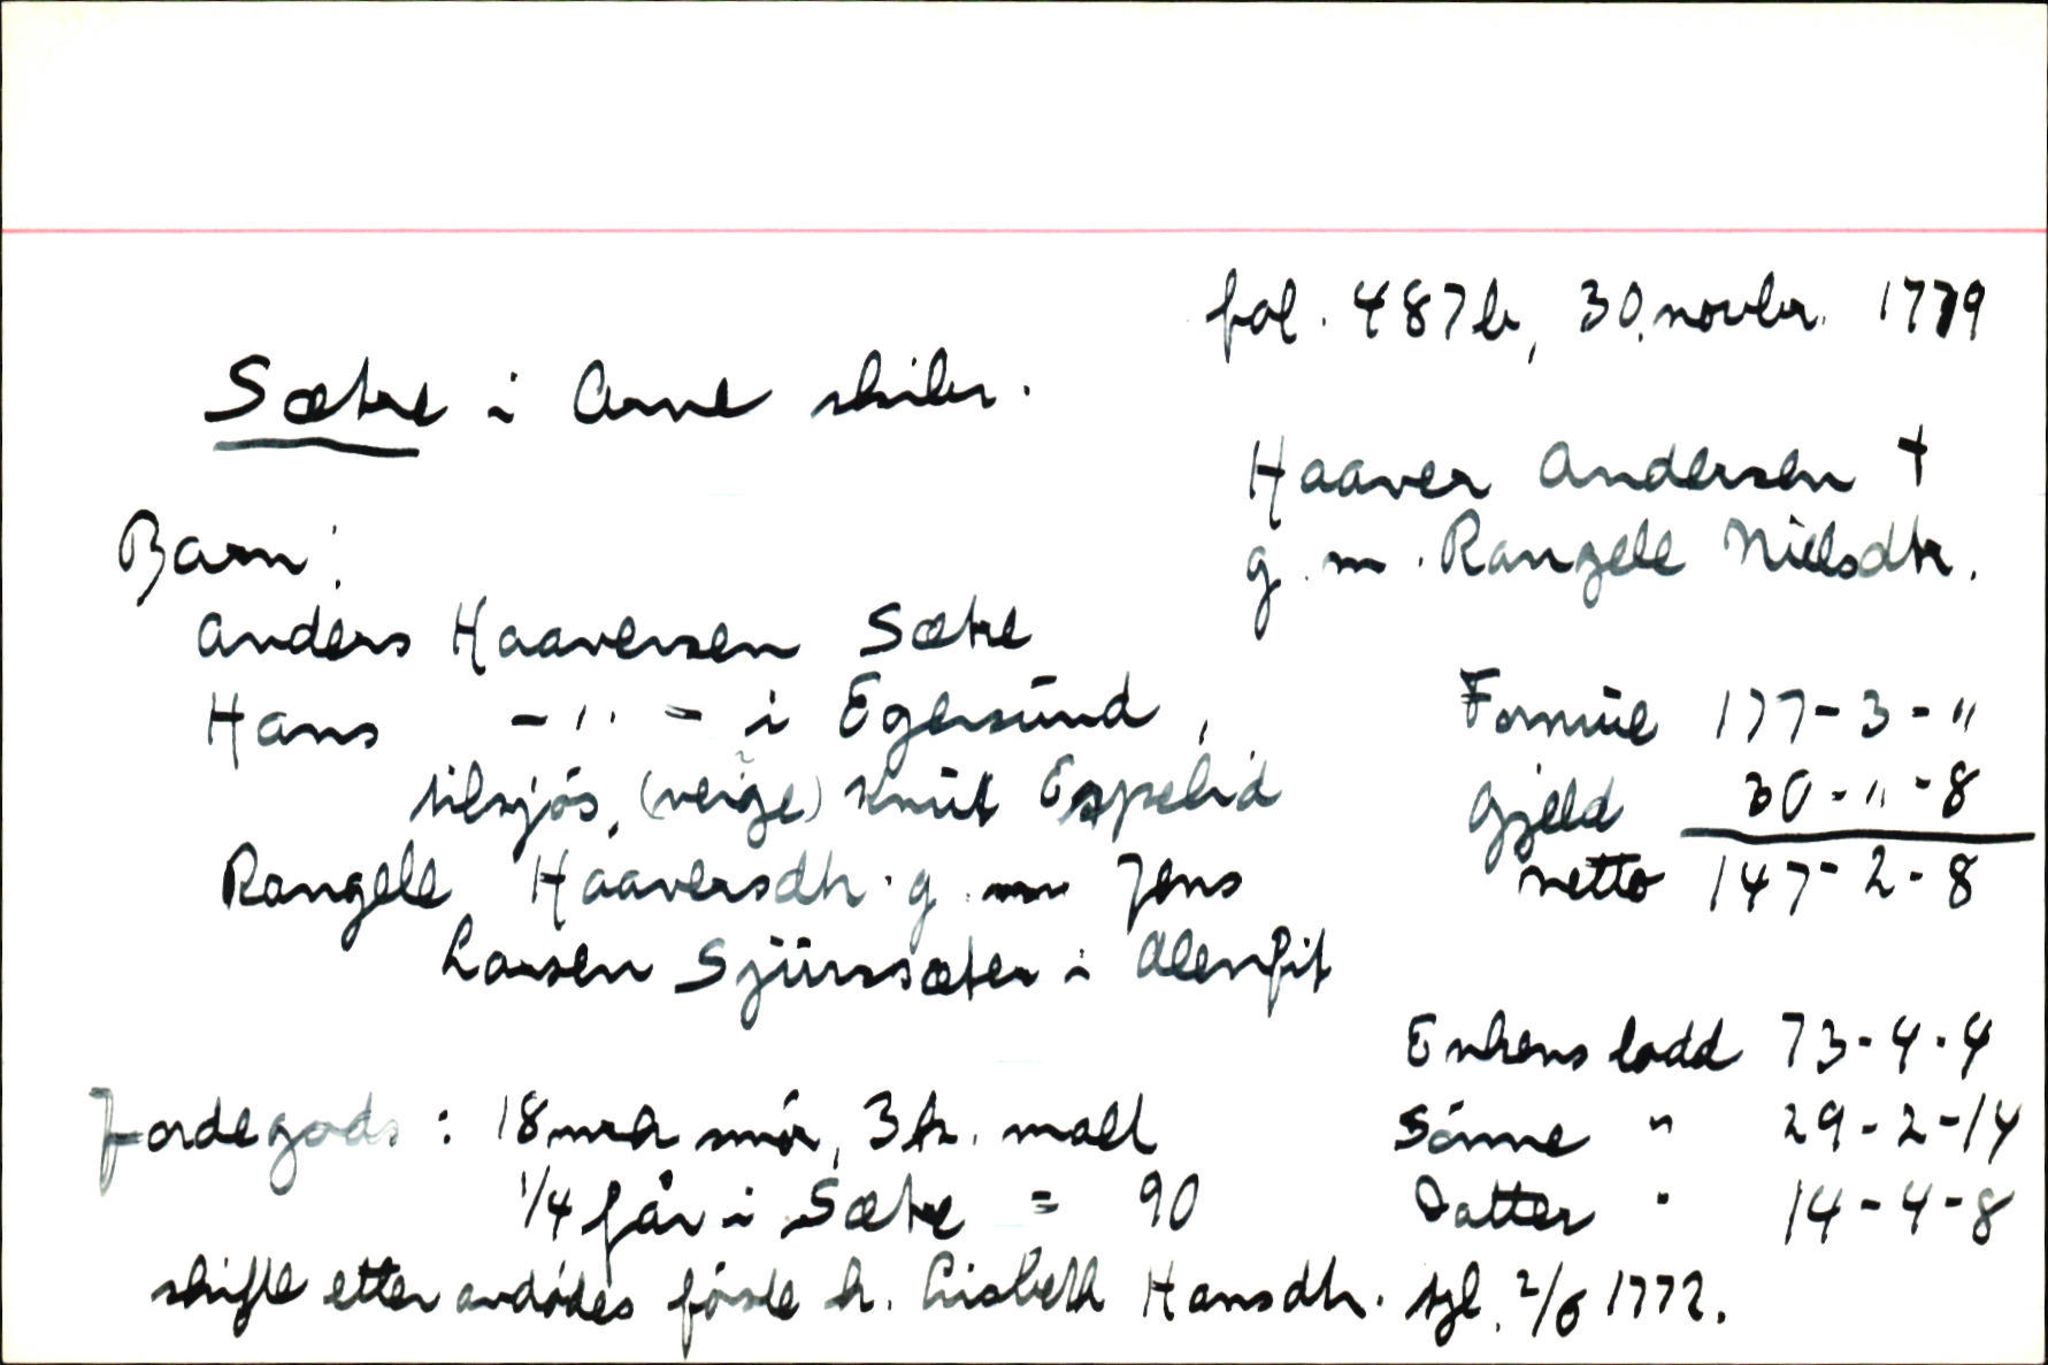 fol. 487b, 30. novbr. 1779
Sætre i Arne skibr.
Haaver Andersen †
g. m. Rangele Nielsdtr.
Barn:
Anders Haaversen Sætre
Hans -"- i Egersund,
tilsjøs, (verge) Knut Espelid
Rangele Haaversdtr. g. m. Jens
Larsen Sjurssæter i Alenfit
Formue 177-3-"
Gjeld 30-"-8
netto 147-2-8
Enkens lodd 73-4-4
Sønne " 29-2-14
Datter " 14-4-8
Jordegods: 18 mrk smør, 3 k. malt
1/4 får i Sætre = 90
skifte etter avdødes første h. Lisbeth Hansdtr. tgl. 2/6 1772.